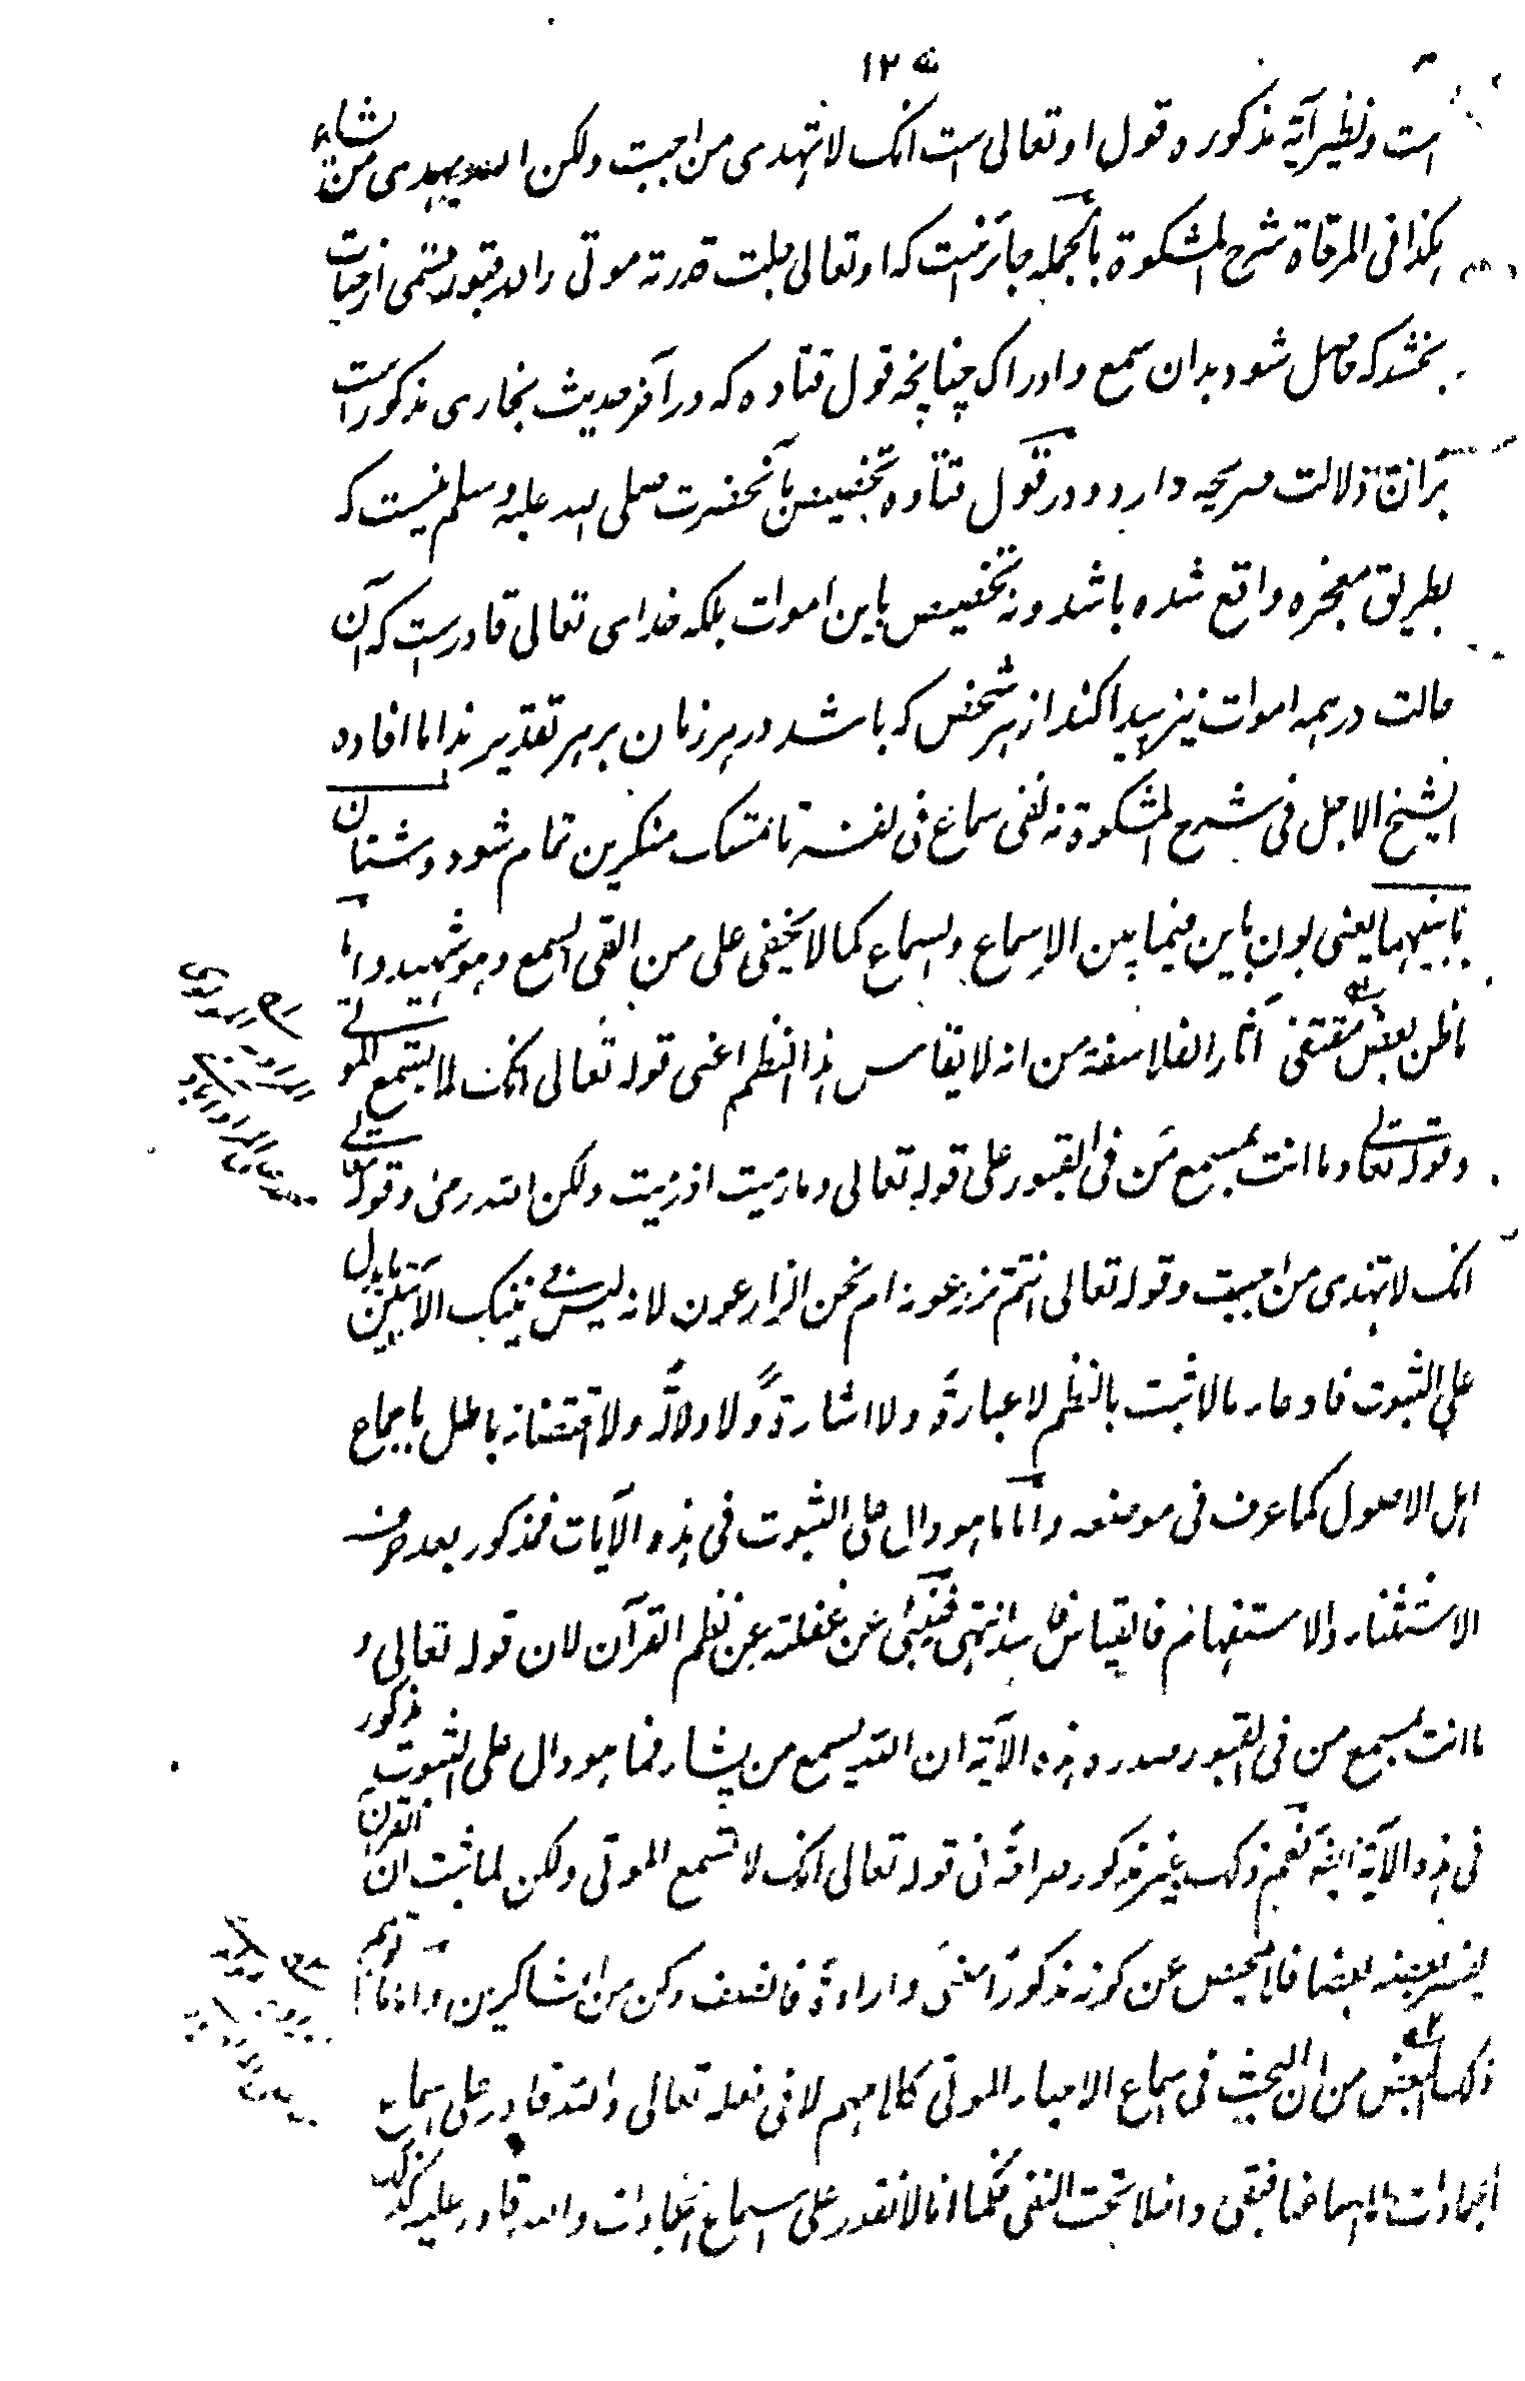 ۱۲۵
است و نظیر آیهٔ مذکوره قول او تعالی است انک لا تهدی من احببت ولکن الله یهدی من یشاء
هکذا فی المرقاة شرح المشکوة بالجمله جائز است که او تعالی جلت قدرته موتی را در قبور قسمی از حیات
بخشد که حاصل شود بدان سمع و ادراک چنانچه قول قتاده که در آخر حدیث بخاری مذکور است
بران دلالت صریحه دارد و در قول قتاده تخصیص بآنحضرت صلی الله علیه وسلم نیست که
بطریق معجزه واقع شده باشد و نه تخصیص باین اموات بلکه خدای تعالی قادر است که آن
حالت در همه اموات نیز پیدا کند از هر شخص که باشد در هر زمان بر هر تقدیر هذا ما افاده
الشیخ الاجل فی شرح المشکوة نه نفی سماع فی نفسه تا تمسک منکرین تمام شود و شتان
ما بینهما یعنی بون باین فیما بین الاسماع والسماع کما لا یخفی علی من القی السمع وهو شهید واما
ما ظن بعض مقتفی آثار الفلاسفة من انه لا یقاس هذا النظم اعنی قوله تعالی انک لا تسمع الموتی
وقوله تعالی وما انت بمسمع من فی القبور علی قوله تعالی وما رمیت اذ رمیت ولکن الله رمی وقوله تعالی
انک لا تهدی من احببت وقوله تعالی أانتم تزرعونه ام نحن الزارعون لانه لیس فی تینک الآیتین ما یدل
علی الثبوت فادعاء ما لا ثبت بالنظم لا عبارةً ولا اشارةً ولا دلالةً ولا اقتضاءً باطل باجماع
اهل الاصول کما عرف فی موضعه واما ما هو دال علی الثبوت فی هذه الآیات فمذکور بعد حرف
الاستثناء والاستفهام فالقیاس فاسد انتهی فینبئ عن غفلته عن نظم القرآن لان قوله تعالی و
ما انت بمسمع من فی القبور صدر هذه الآیة ان الله یسمع من یشاء فما هو دال علی الثبوت مذکور
فی هذه الآیة البتة نعم ذلک غیر مذکور صراحةً فی قوله تعالی انک لا تسمع الموتی ولکن لما ثبت ان القرآن
یفسر بعضه بعضا فلا محیص عن کونه مذکوراً معنیً وارادةً فانصف وکن من الشاکرین واما ما توهم
ذلک البعض من ان البحث فی اسماع الاحیاء الموتی کلامهم لا فی فعله تعالی والله قادر علی اسماع
الجمادات کلامهما ضابقی داخلا تحت النفی فکما انا لا نقدر علی اسماع الجمادات والله قادر علیه کذلک